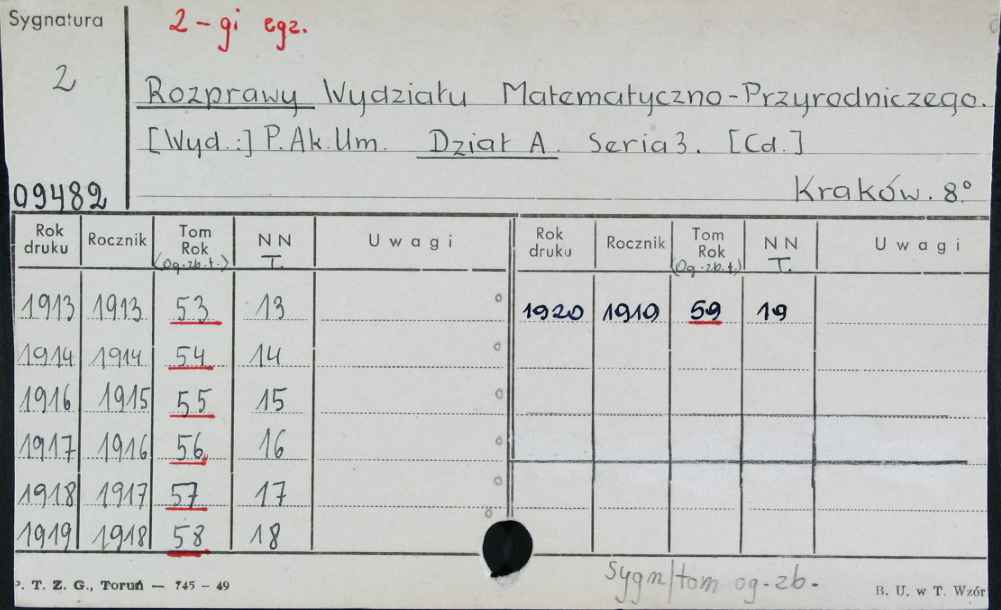 Sygnatura 2-gi egz.
2
Rozprawy Wydziału Matematyczno-Przyrodniczego.
[Wyd.:] P. Ak. Um. Dział A. Seria 3. [Cd.]
09482 Kraków. 8°
Rok druku Rocznik Tom Rok (Og.zb.t.) NN T. Uwagi Rok druku Rocznik Tom Rok (Og.zb.t.) NN T. Uwagi
1913 1913 53 13 1920 1919 59 19
1914 1914 54 14
1916 1915 55 15
1917 1916 56 16
1918 1917 57 17
1919 1918 58 18
Sygn/tom og.-zb.
P. T. Z. G., Toruń — 745 – 49 B. U. w T. Wzór